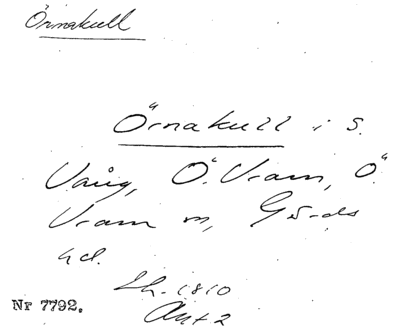 Örnakull
Örnakull i S.
Vång, Ö. Vram, Ö.
Vram sn, Gärds
hd.
Lh. 1810
Akt 2
Nr 7792.